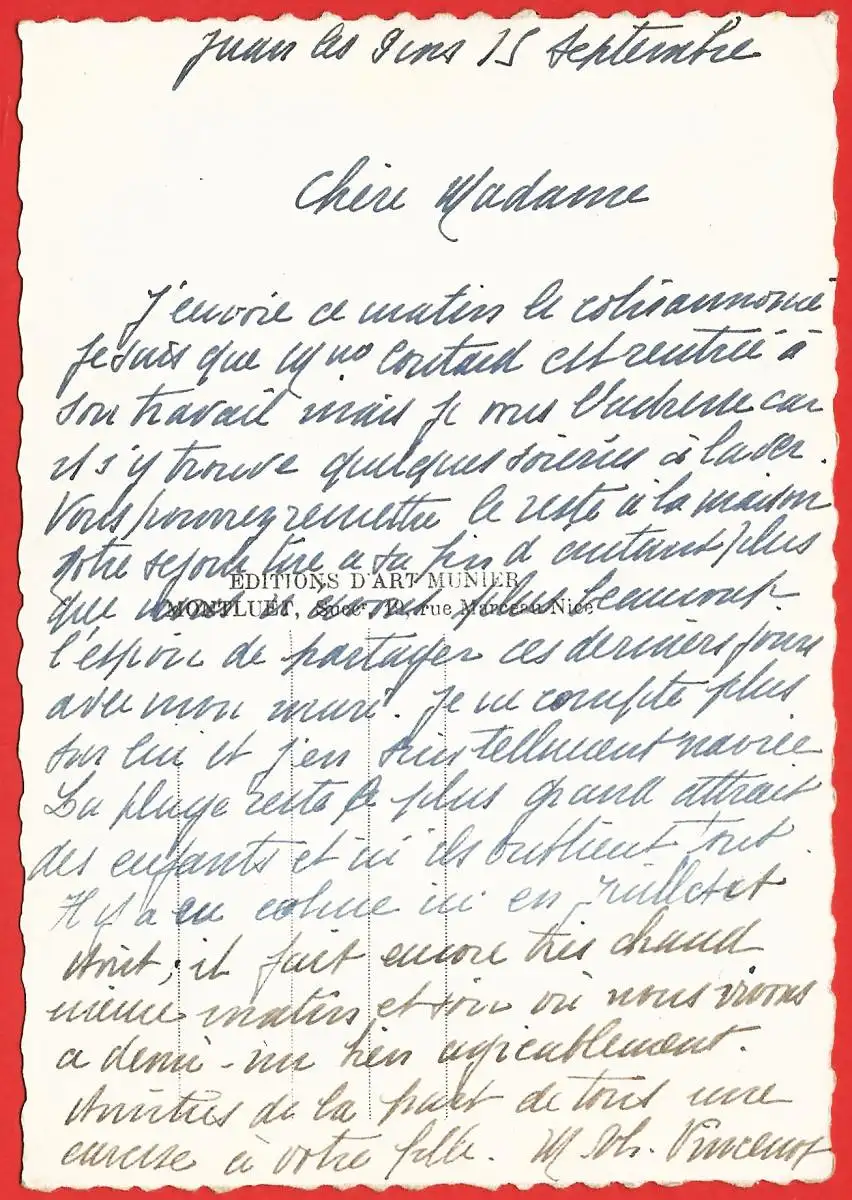 Juan les Pins 15 Septembre
Chère Madame
J'envoie ce matin le colis annoncé
Je sais que Mme est rentrée à
son travail mais je vous l'adresse car
il s'y trouve quelques soieries à laver.
Vous pouvez remettre le reste à la maison
Notre séjour tire à sa fin d'autant plus
EDITIONS D'ART MUNIER
que plus beaucoup
MONTLUET, Succr, 19, rue Marceau-Nice
l'espoir de partager ces derniers jours
avec mon mari. Je ne compte plus
sur lui et j'en suis tellement navrée
La plage reste le plus grand attrait
des enfants et ici ils oublient tout.
Il y a eu cohue ici en Juillet et
Août; il fait encore très chaud
même matin et soir où nous vivons
a demi-nu bien agréablement.
Amitiés de la part de tous une
caresse à votre fille. M Vincenot